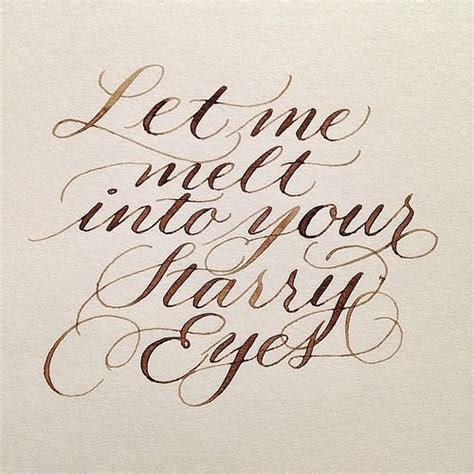 Let me
melt
into your
Starry
Eyes